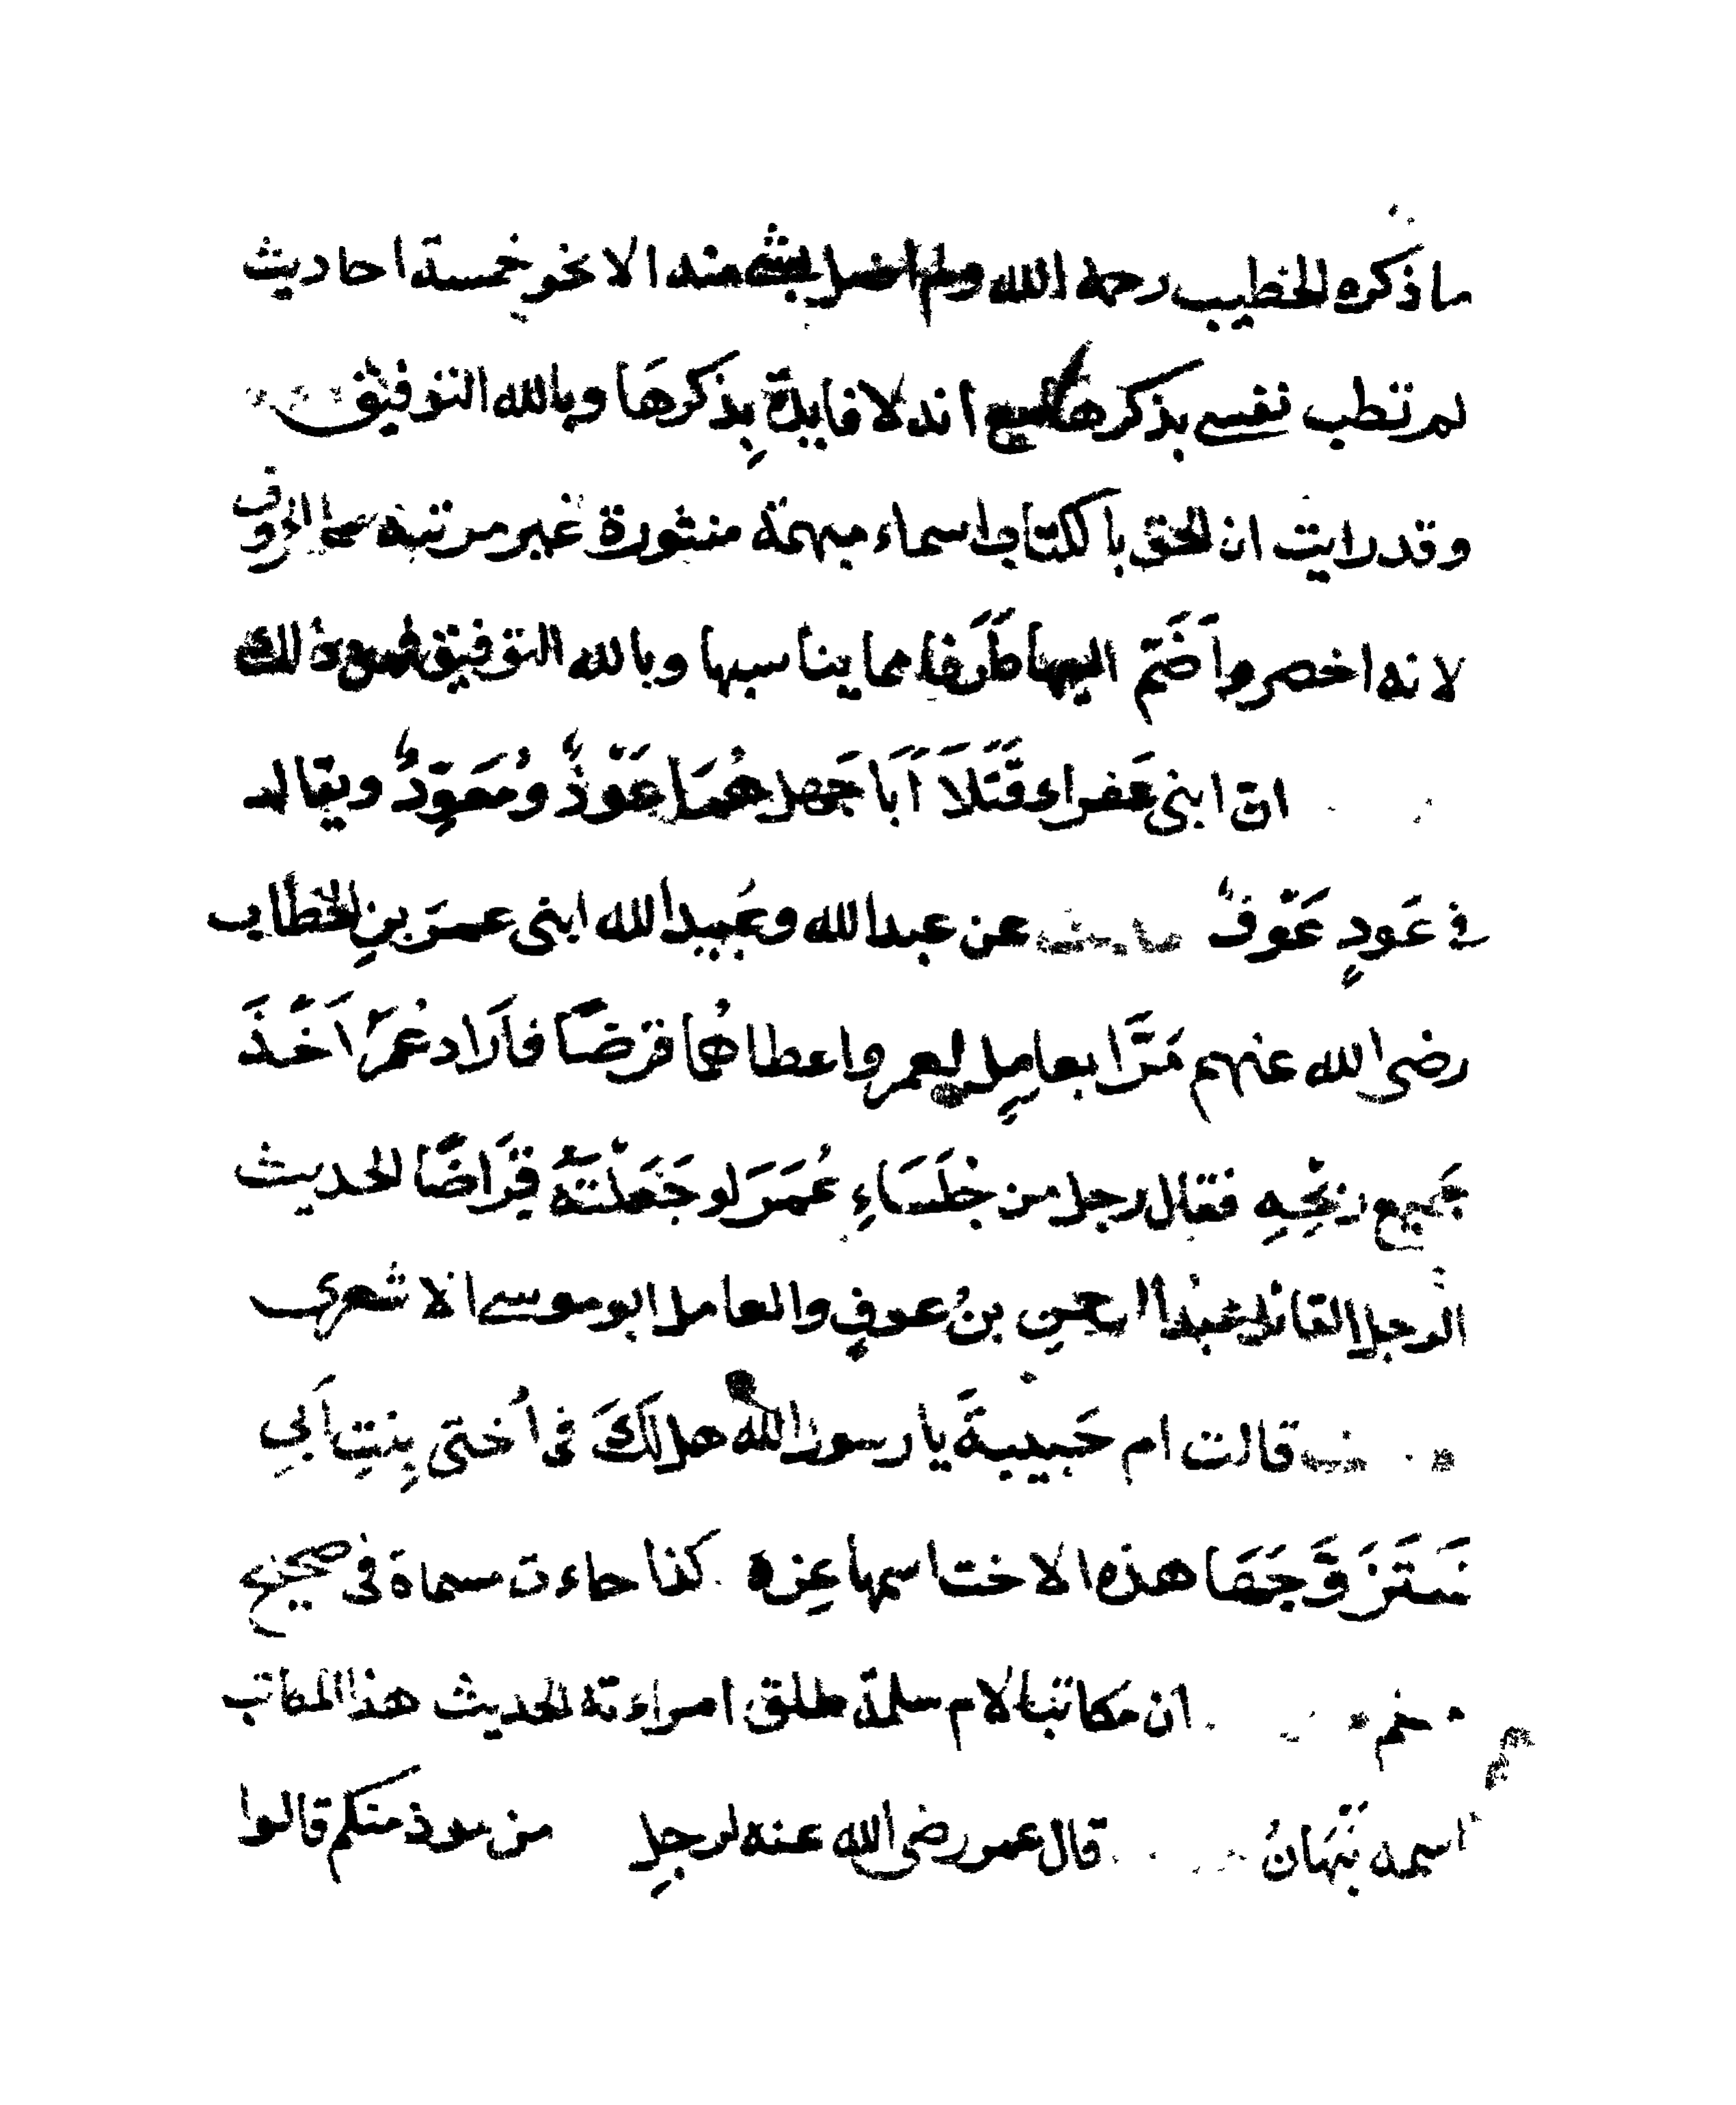 ما ذكره الخطيب رحمه الله ولم اخل بشئ منه الا نحو خمسة احاديث
لم تطب نفسي بذكرها مع انه لا فايدة بِذكرهَا وبالله التوفيق
وقد رايت ان الحق بالكتاب اسماء مبهمة منثورة غير مرتبة على الحروف
لانه اخصر واَضُمّ اليها طَرَفا مما يناسبها وبالله التوفيق فمن ذلك
ان ابنى عَفراء قَتَلاَ اَبَا جَهل هُمَا عَوْذٌ ومُعَوِّذٌ ويقال
في عَوذٍ عَوْفٌ عن عبد الله وعُبيد الله ابنى عمرَ بنِ الخطاب
رضى الله عنهم مَرَّا بعامِلٍ لعمر واعطاهُما قرضًا فاَرَاد عُمَرُ اَخْذَ
جَميع رِبْحِهِ فقال رجل من جُلَسَاءِ عُمَرَ لو جَعَلْتَهُ قِرَاضًا الحديث
الرجل القائل عبد الرحمنِ بنُ عوفٍ والعامل ابو موسى الاشعرى
قالت ام حَبيبةَ يا رسول الله هل لَكَ فى اُختى بِنتِ اَبِي
نَتَزَوَّجَهَا هذه الاخت اسمها عِزه كذا جاءت مسماة فى صحيح
ان مكاتبا لام سلمة طلق امراءته الحديث هذا المكاتب
اسمه نَبْهَانُ قال عمر رضى الله عنه لرجلٍ من موذ منكم قالوا